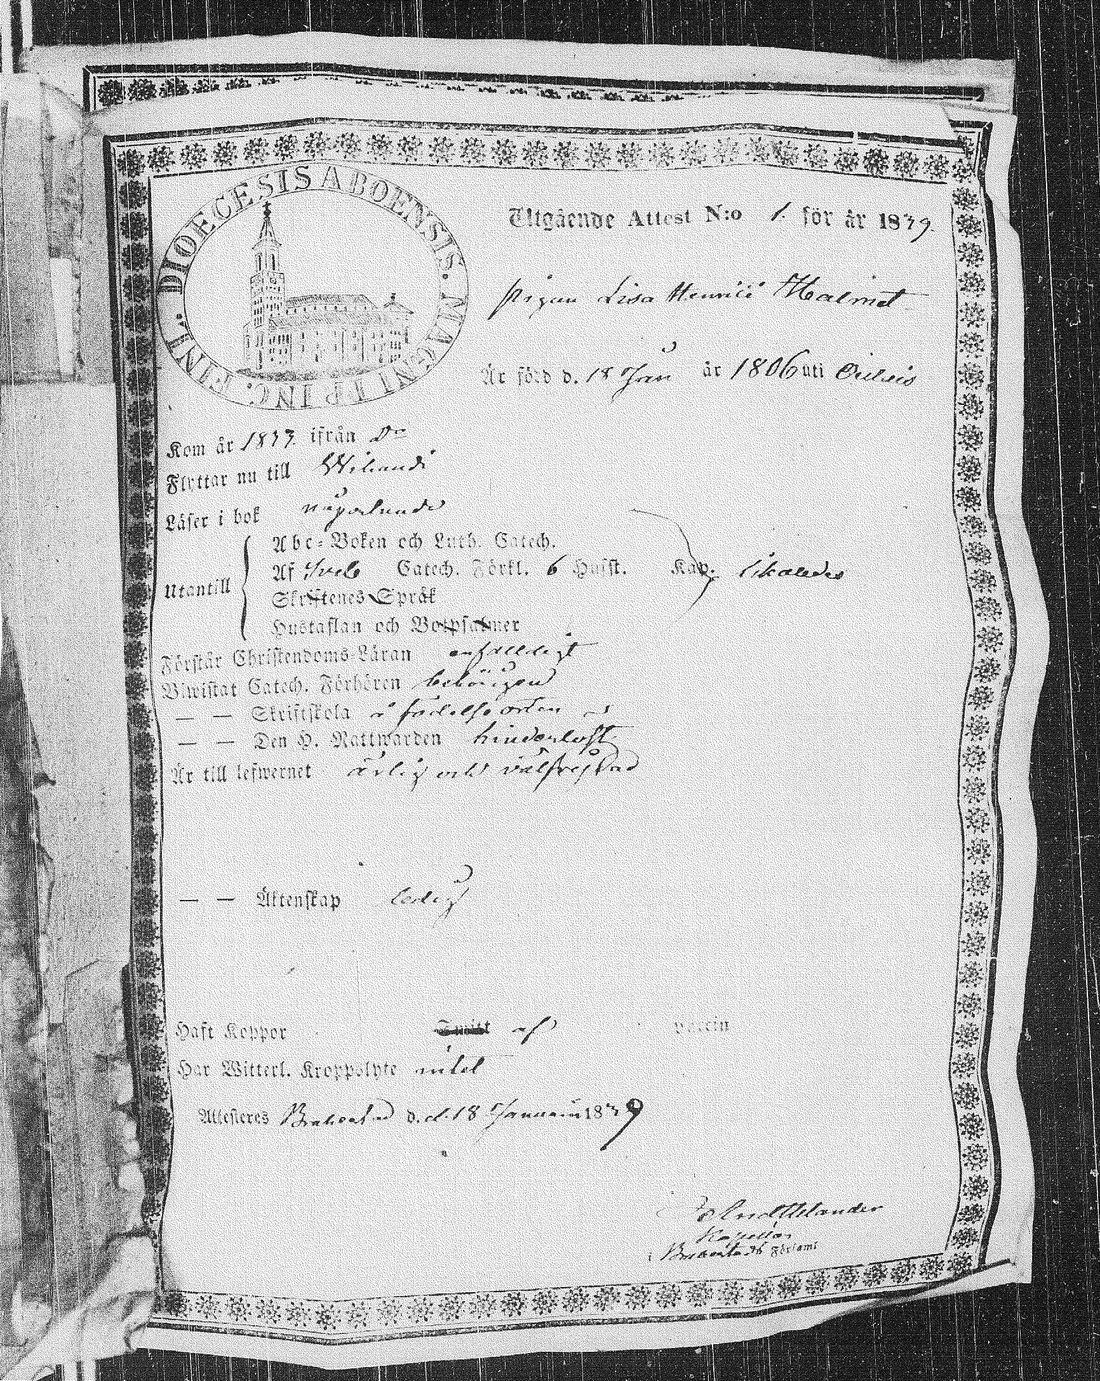 DIOECESIS ABOENSIS. MAGNI PRINC. FINL.
Utgående Attest N:o 1. för år 1839.
pigan Lisa Henrici Halmet
Är född d. 18 Jan år 1806 uti
Kom år 1837. ifrån Do
Flyttar nu till Wihandi
Läser i bok någorlunda
Utantill
Abc-Boken och Luth. Catech.
Af Sveb Catech. Förkl. 6 Husst. Kap. likaledes
Skriftenes Språk
Hustaflan och Botpsalmer
Förstår Christendoms-Läran enfaldigt
Biwistat Catech. Förhören behörigen
— — Skriftskola å födelseorten
— — Den H. Nattwarden hinderlöst
Är till lefwernet ärlig och välfrejdad
— — Äktenskap ledig
Haft Koppor af vaccin
Har Witterl. Kroppslyte intet
Attesteres Brahestad d. d. 18 Januarii 1839
Kapellan
i Brahestads Församl